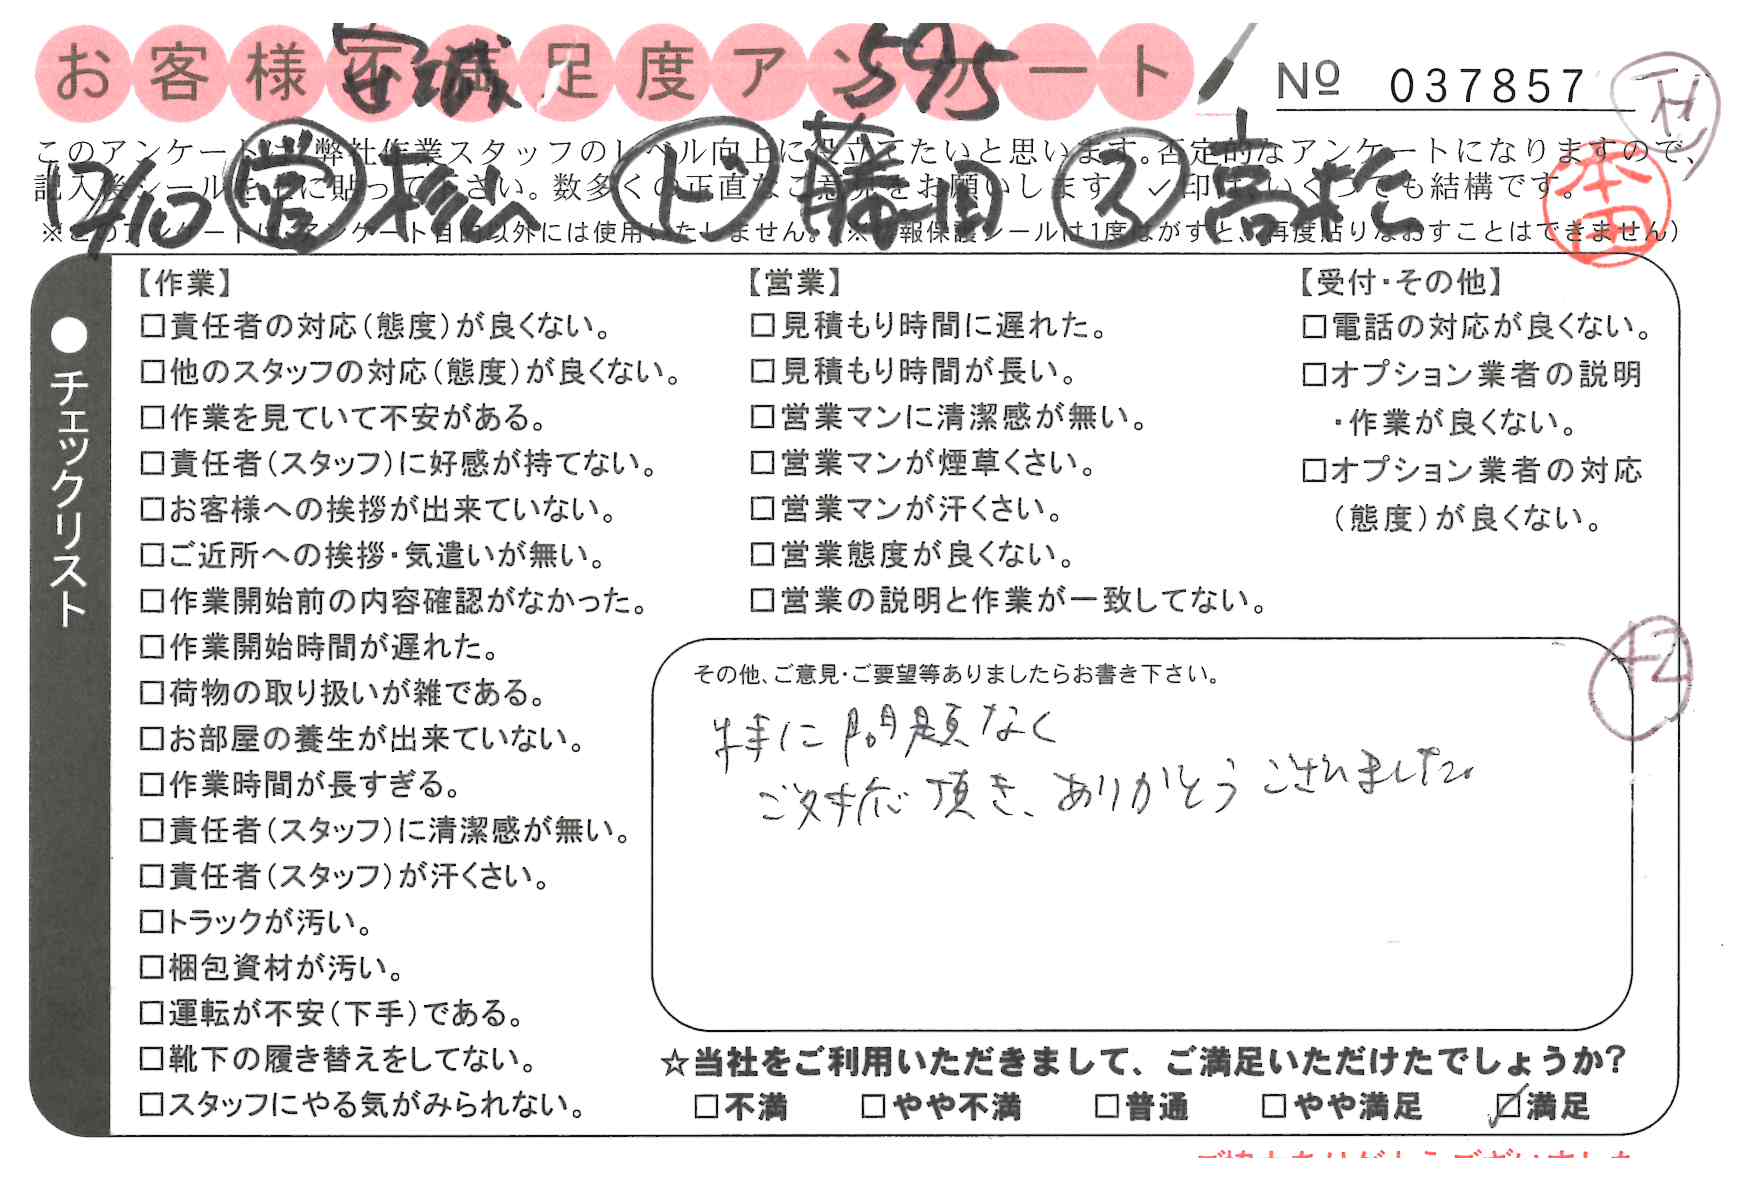 お客様不満足度アンケート
宮城 595
№ 037857
このアンケートは、弊社作業スタッフのレベル向上に役立てたいと思います。否定的なアンケートになりますので、
記入後シールを上に貼って下さい。数多くの正直なご意見をお願いします。✓印は、いくつでも結構です。
12/10 営 ド 勝田 ス 高松
本田
※このアンケートは、アンケート目的以外には使用いたしません。(※情報保護シールは1度はがすと、再度貼りなおすことはできません)
●チェックリスト
【作業】
□責任者の対応(態度)が良くない。
□他のスタッフの対応(態度)が良くない。
□作業を見ていて不安がある。
□責任者(スタッフ)に好感が持てない。
□お客様への挨拶が出来ていない。
□ご近所への挨拶・気遣いが無い。
□作業開始前の内容確認がなかった。
□作業開始時間が遅れた。
□荷物の取り扱いが雑である。
□お部屋の養生が出来ていない。
□作業時間が長すぎる。
□責任者(スタッフ)に清潔感が無い。
□責任者(スタッフ)が汗くさい。
□トラックが汚い。
□梱包資材が汚い。
□運転が不安(下手)である。
□靴下の履き替えをしてない。
□スタッフにやる気がみられない。
【営業】
□見積もり時間に遅れた。
□見積もり時間が長い。
□営業マンに清潔感が無い。
□営業マンが煙草くさい。
□営業マンが汗くさい。
□営業態度が良くない。
□営業の説明と作業が一致してない。
【受付・その他】
□電話の対応が良くない。
□オプション業者の説明
・作業が良くない。
□オプション業者の対応
(態度)が良くない。
その他、ご意見・ご要望等ありましたらお書き下さい。
特に問題なく
ご対応頂き、ありがとうございました。
☆当社をご利用いただきまして、ご満足いただけたでしょうか?
□不満 □やや不満 □普通 □やや満足 ☑満足